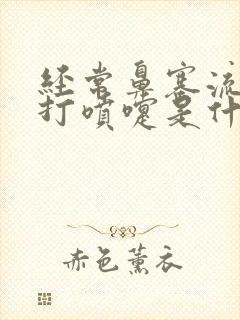 经常鼻塞流
打喷嚏是什
赤色薰衣